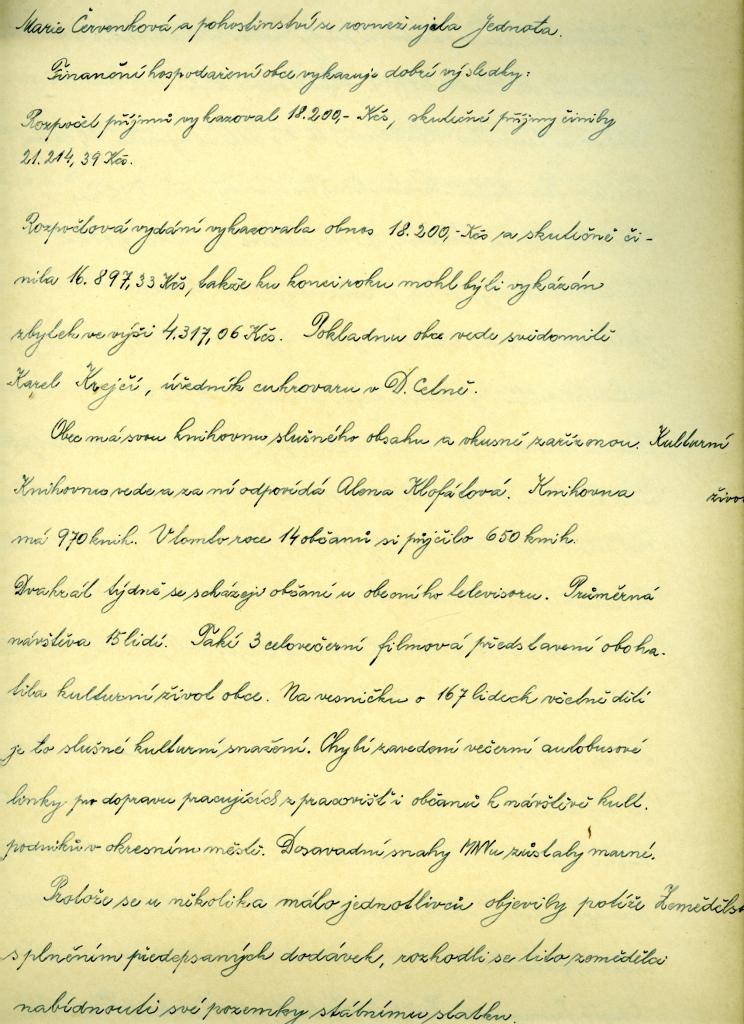 Marie Červenková, a pohostinství si rovněž ujala Jednota.
Finanční hospodaření obce vykazuje dobré výsledky:
Rozpočet příjmů vykazoval 18.200,- Kčs, skutečné příjmy činily
21.214,39 Kčs.
Rozpočtová vydání vykazovala obnos 18.200,- Kčs a skutečně či-
nila 16.897,33 Kčs, takže ku konci roku mohl býti vykázán
zbytek ve výši 4.317,06 Kčs. Pokladnu obce vede svědomitě
Karel Krejčí, úředník cukrovaru v D. Cetně.
Obec má svou knihovnu slušného obsahu a vkusně zařízenou. Kulturní
Knihovnu vede a za ní odpovídá Alena Klofátová. Knihovna život
má 970 knih. V tomto roce 14 občanů si půjčilo 650 knih.
Dvakrát týdně se scházejí občani u obecního televisoru. Průměrná
návštěva 15 lidí. Také 3 celovečerní filmová představení oboha-
tila kulturní život obce. Na vesničku o 167 lidech včetně dětí
je to slušné kulturní snažení. Chybí zavedení večerní autobusové
linky pro dopravu pracujících z pracovišť i občanů k návštěvě kult.
podniků v okresním městě. Dosavadní snahy MNVu zůstaly marné.
Protože se u několika málo jednotlivců objevily potíže Zeměděls
s plněním předepsaných dodávek, rozhodli se tito zemědělci
nabídnouti své pozemky státnímu statku.